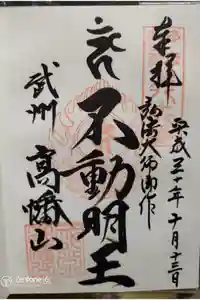 奉拝
弘法大師御作
平成三十年十月十三日
不動明王
武州
高幡山
Zenfone 5Z